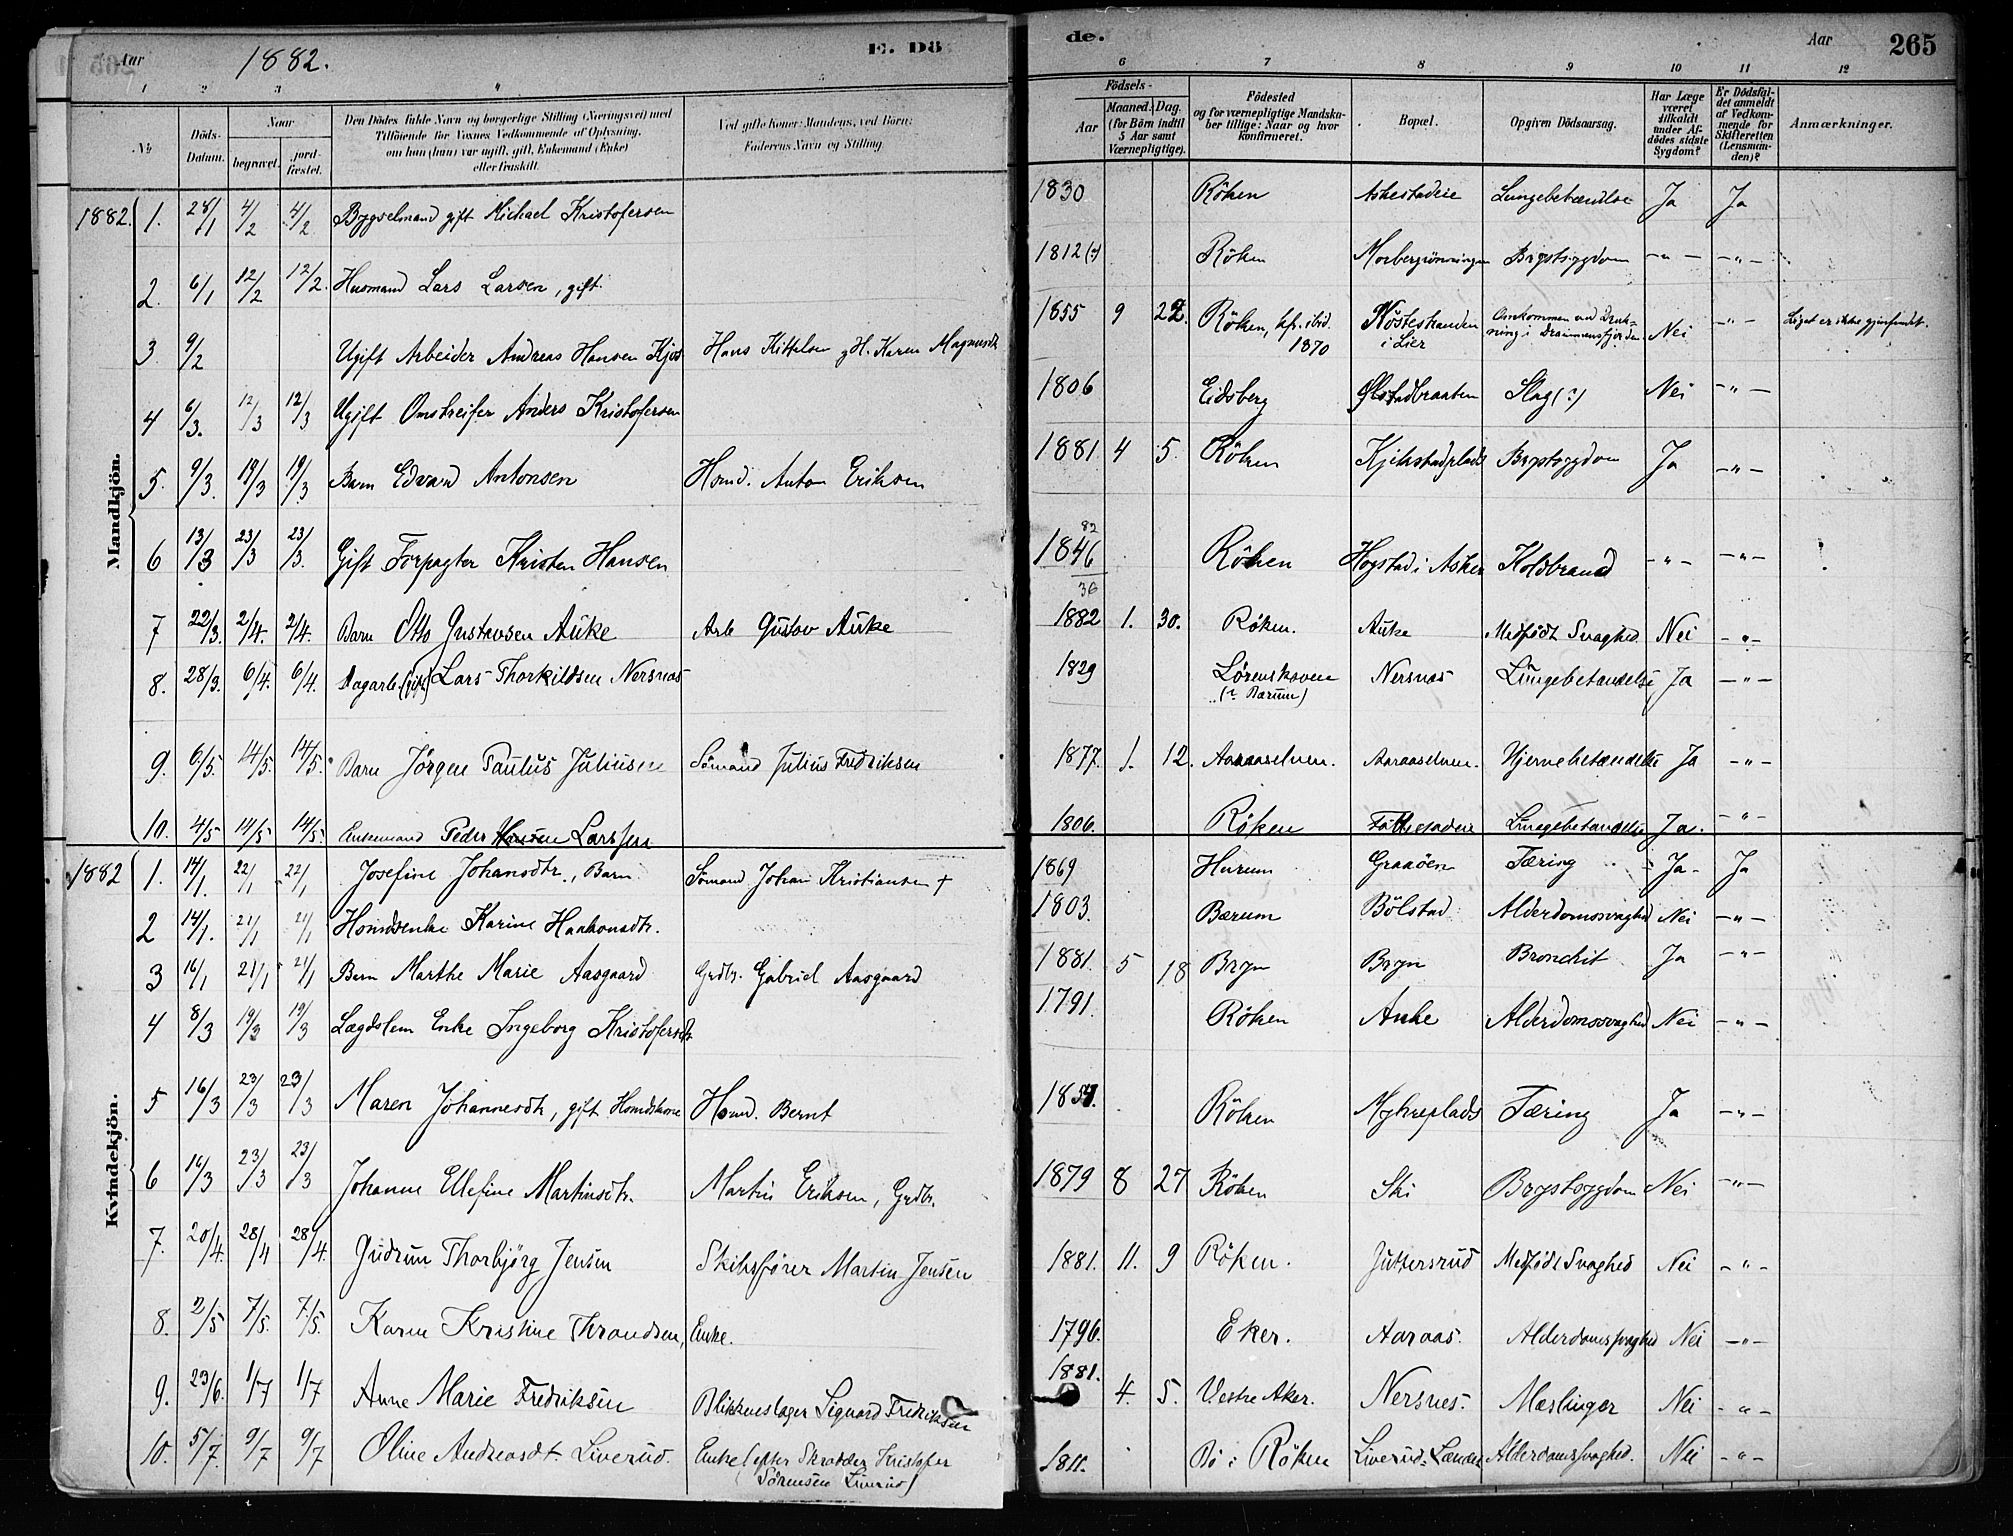 Aar 1882. E. Dö
de. Aar 265
1 2 3 4 5
6 7 8 9 10 11 12
No.
Döds-Datum.
Naar
begravet.
jord-fæstet.
Den Dödes fulde Navn og borgerlige Stilling (Næringsvei) med
Tilföiende for Voxnes Vedkommende af Oplysning,
om han (hun) var ugift, gift, Enkemand (Enke)
eller fraskilt.
Ved gifte Koner: Mandens, ved Börn:
Faderens Navn og Stilling.
Födsels-
Aar
Maaned. Dag.
(for Börn indtil
5 Aar samt
Værnepligtige).
Födested
og for værnepligtige Mandska-
ber tillige: Naar og hvor
konfirmeret.
Bopæl.
Opgiven Dödsaarsag.
Har Læge
været
tilkaldt
under Af-
dödes sidste
Sygdom?
Er Dödsfal-
det anmeldt
af Vedkom-
mende for
Skifteretten
(Lensman-
den)?
Anmærkninger.
Mandkjön.
1882. 1. 28/1 4/2 4/2 Bygselmand gift Michael Kristofersen 1830 Röken Askestadeie Lungebetændlse Ja Ja
2. 6/1 12/2 12/2. Husmand Lars Larsen, gift 1812(?) Röken Morbergrönningen Brystsygdom -"- -"-
3. 9/2 Ugift Arbeider Andreas Hansen Kjos Hans Kittelsen gH. Karen Magnusdt 1855 9 22. Röken, kfr. ibid. 1870 Nöstestranden i Lier Omkommen ved Drukning i Drammensfjorden Nei -"- Liget er ikke gjenfundet.
4 6/3. 12/3 12/3 Ugift Omstreifer Anders Kristofersen 1806 Eidsberg Ølstadbraaten Slag(?) Nei -"-
5. 9/3. 19/3 19/3 Barn Edvard Antonsen Hsmd. Anton Eriksen 1881 4 5. Röken Kjekstadplads Brystsygdom Ja -"-
6 13/3 23/3 23/3. Gift Forpagter Kristen Hansen 82 1846 36 Röken Hogstad i Asker Koldbrand -"- -"-
7 22/3. 2/4. 2/4. Barn Otto Gustavsen Auke Arb Gustav Auke 1882 1. 30. Røken. Auke Medfødt Svaghed Nei -"-
8. 28/3. 6/4. 6/4. Dagarb. (gift) Lars Thorkildsen Nersnæs 1829 Lørenskoven (? Bærum) Nersnæs Lungebetændelse Ja -"-
9. 6/5. 14/5. 14/5. Barn Jörgen Paulus Juliusen Sömand Julius Fredriksen 1877. 1. 12. Aaraaselven. Aaraaselven. Hjernebetændelse Ja -"-
10. 4/5 14/5 14/5. Enkemand Peder Hansen Larssen 1806. Röken Lungebetændelse Ja. -"-
Kvindekjön.
1882 1. 14/1. 22/1 22/1 Josefine Johansdtr., Barn Sömand Johan Kristiansen † 1869 Hurum Graaöen Tæring Ja Ja
2 14/1. 21/1 21/1 Hsmdsenke Karine Haakonsdtr. 1803. Bærum Bölstad Alderdomssvaghed Nei -"-
3 16/1 21/1 21/1 Barn Marthe Marie Aasgaard Grdbr. Gabriel Aasgaard 1881. 5 18 Bryn Bryn Bronchit Ja -"-
4 8/3 19/3 19/3 Lægdslem Enke Ingeborg Kristofersdt 1791. Röken Auke Alderdomssvaghed Nei -"-
5 16/3 23/3 23/3 Maren Johannesdtr, gift Hsmdskone Hsmd. Bernt Röken Myhreplads Tæring Ja -"-
6 16/3 23/3 23/3 Johanne Ellefine Martinsdtr. Martin Eriksen, Grdbr. 1879 8 27 Röken Ski Brystsygdom Nei -"-
7. 20/4. 28/4 28/4. Gudrun Thorbjörg Jensen Skibsfører Martin Jensen 1881. 11. 9 Röken. Juttersrud Medfödt Svaghed Nei -"-
8. 2/5 7/5. 7/5. Karen Kristine Throndsen, Enke. 1796. Eker. Aaraas. Alderdomssvaghed Nei -"-
9. 23/6. 1/7 1/7 Anne Marie Fredriksen Blikkenslager Sigvard Fredriksen 1881. 4. 5. Vestre Aker. Nersnes. Mæslinger Nei -"-
10. 5/7. 9/7 9/7 Oline Andreasdt. Liverud. Enke (efter Skrædder Kristofer Sørensen Liverud) 1811. Bö i Röken Liverud Alderdomssvaghed. Nei -"-